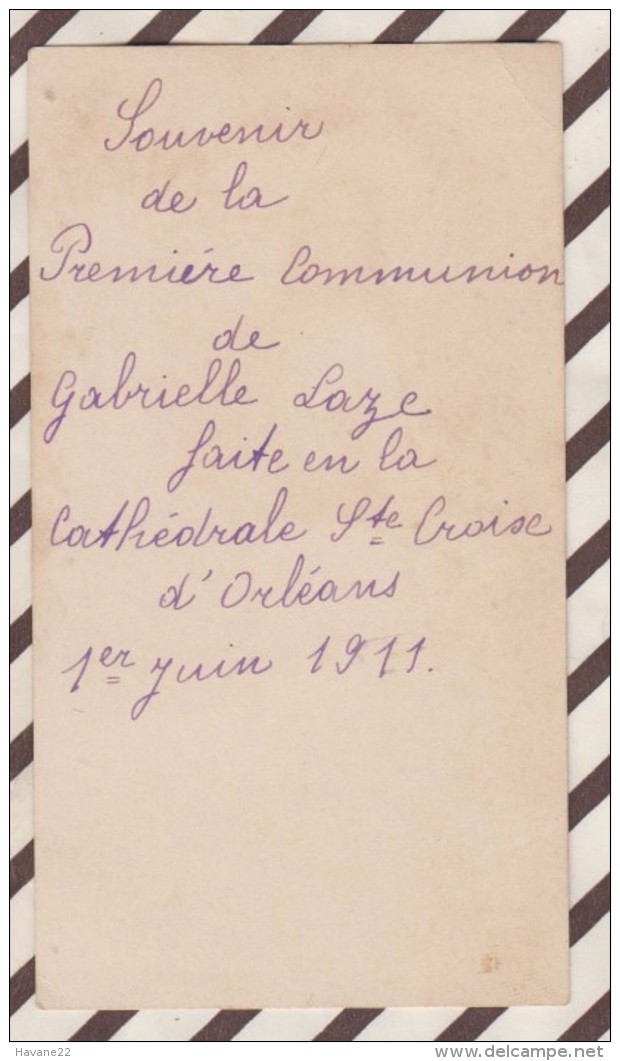 Souvenir
de la
Premiére Communion
de
Gabrielle Laze
faite en la
Cathédrale Ste Croix
d'Orléans
1er juin 1911.
Havane22
www.delcampe.net